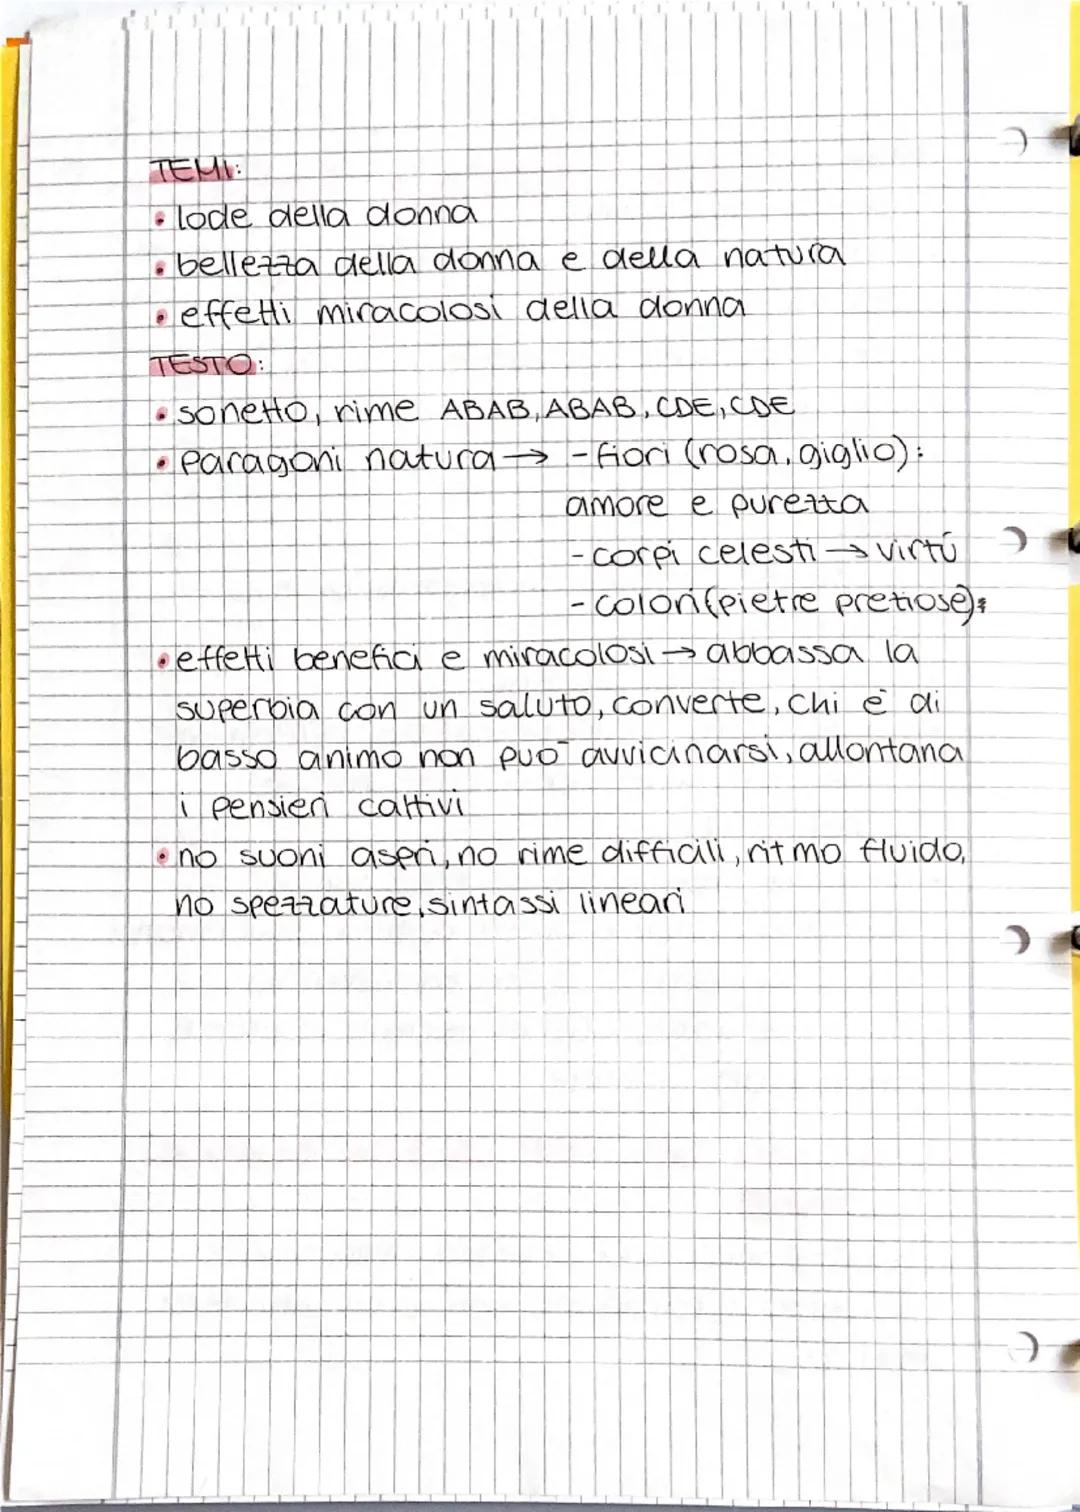 TEMI:
• lode della donna
• bellezza della donna e della natura
• effetti miracolosi della donna
TESTO:
• sonetto, rime ABAB, ABAB, CDE, CDE
• paragoni natura → - fiori (rosa, giglio):
amore e purezza
- corpi celesti → virtú
- colori (pietre pretiose):
• effetti benefici e miracolosi → abbassa la
superbia con un saluto, converte, chi è di
basso animo non può avvicinarsi, allontana
i pensieri cattivi
• no suoni aspri, no rime difficili, ritmo fluido,
no spezzature, sintassi lineari